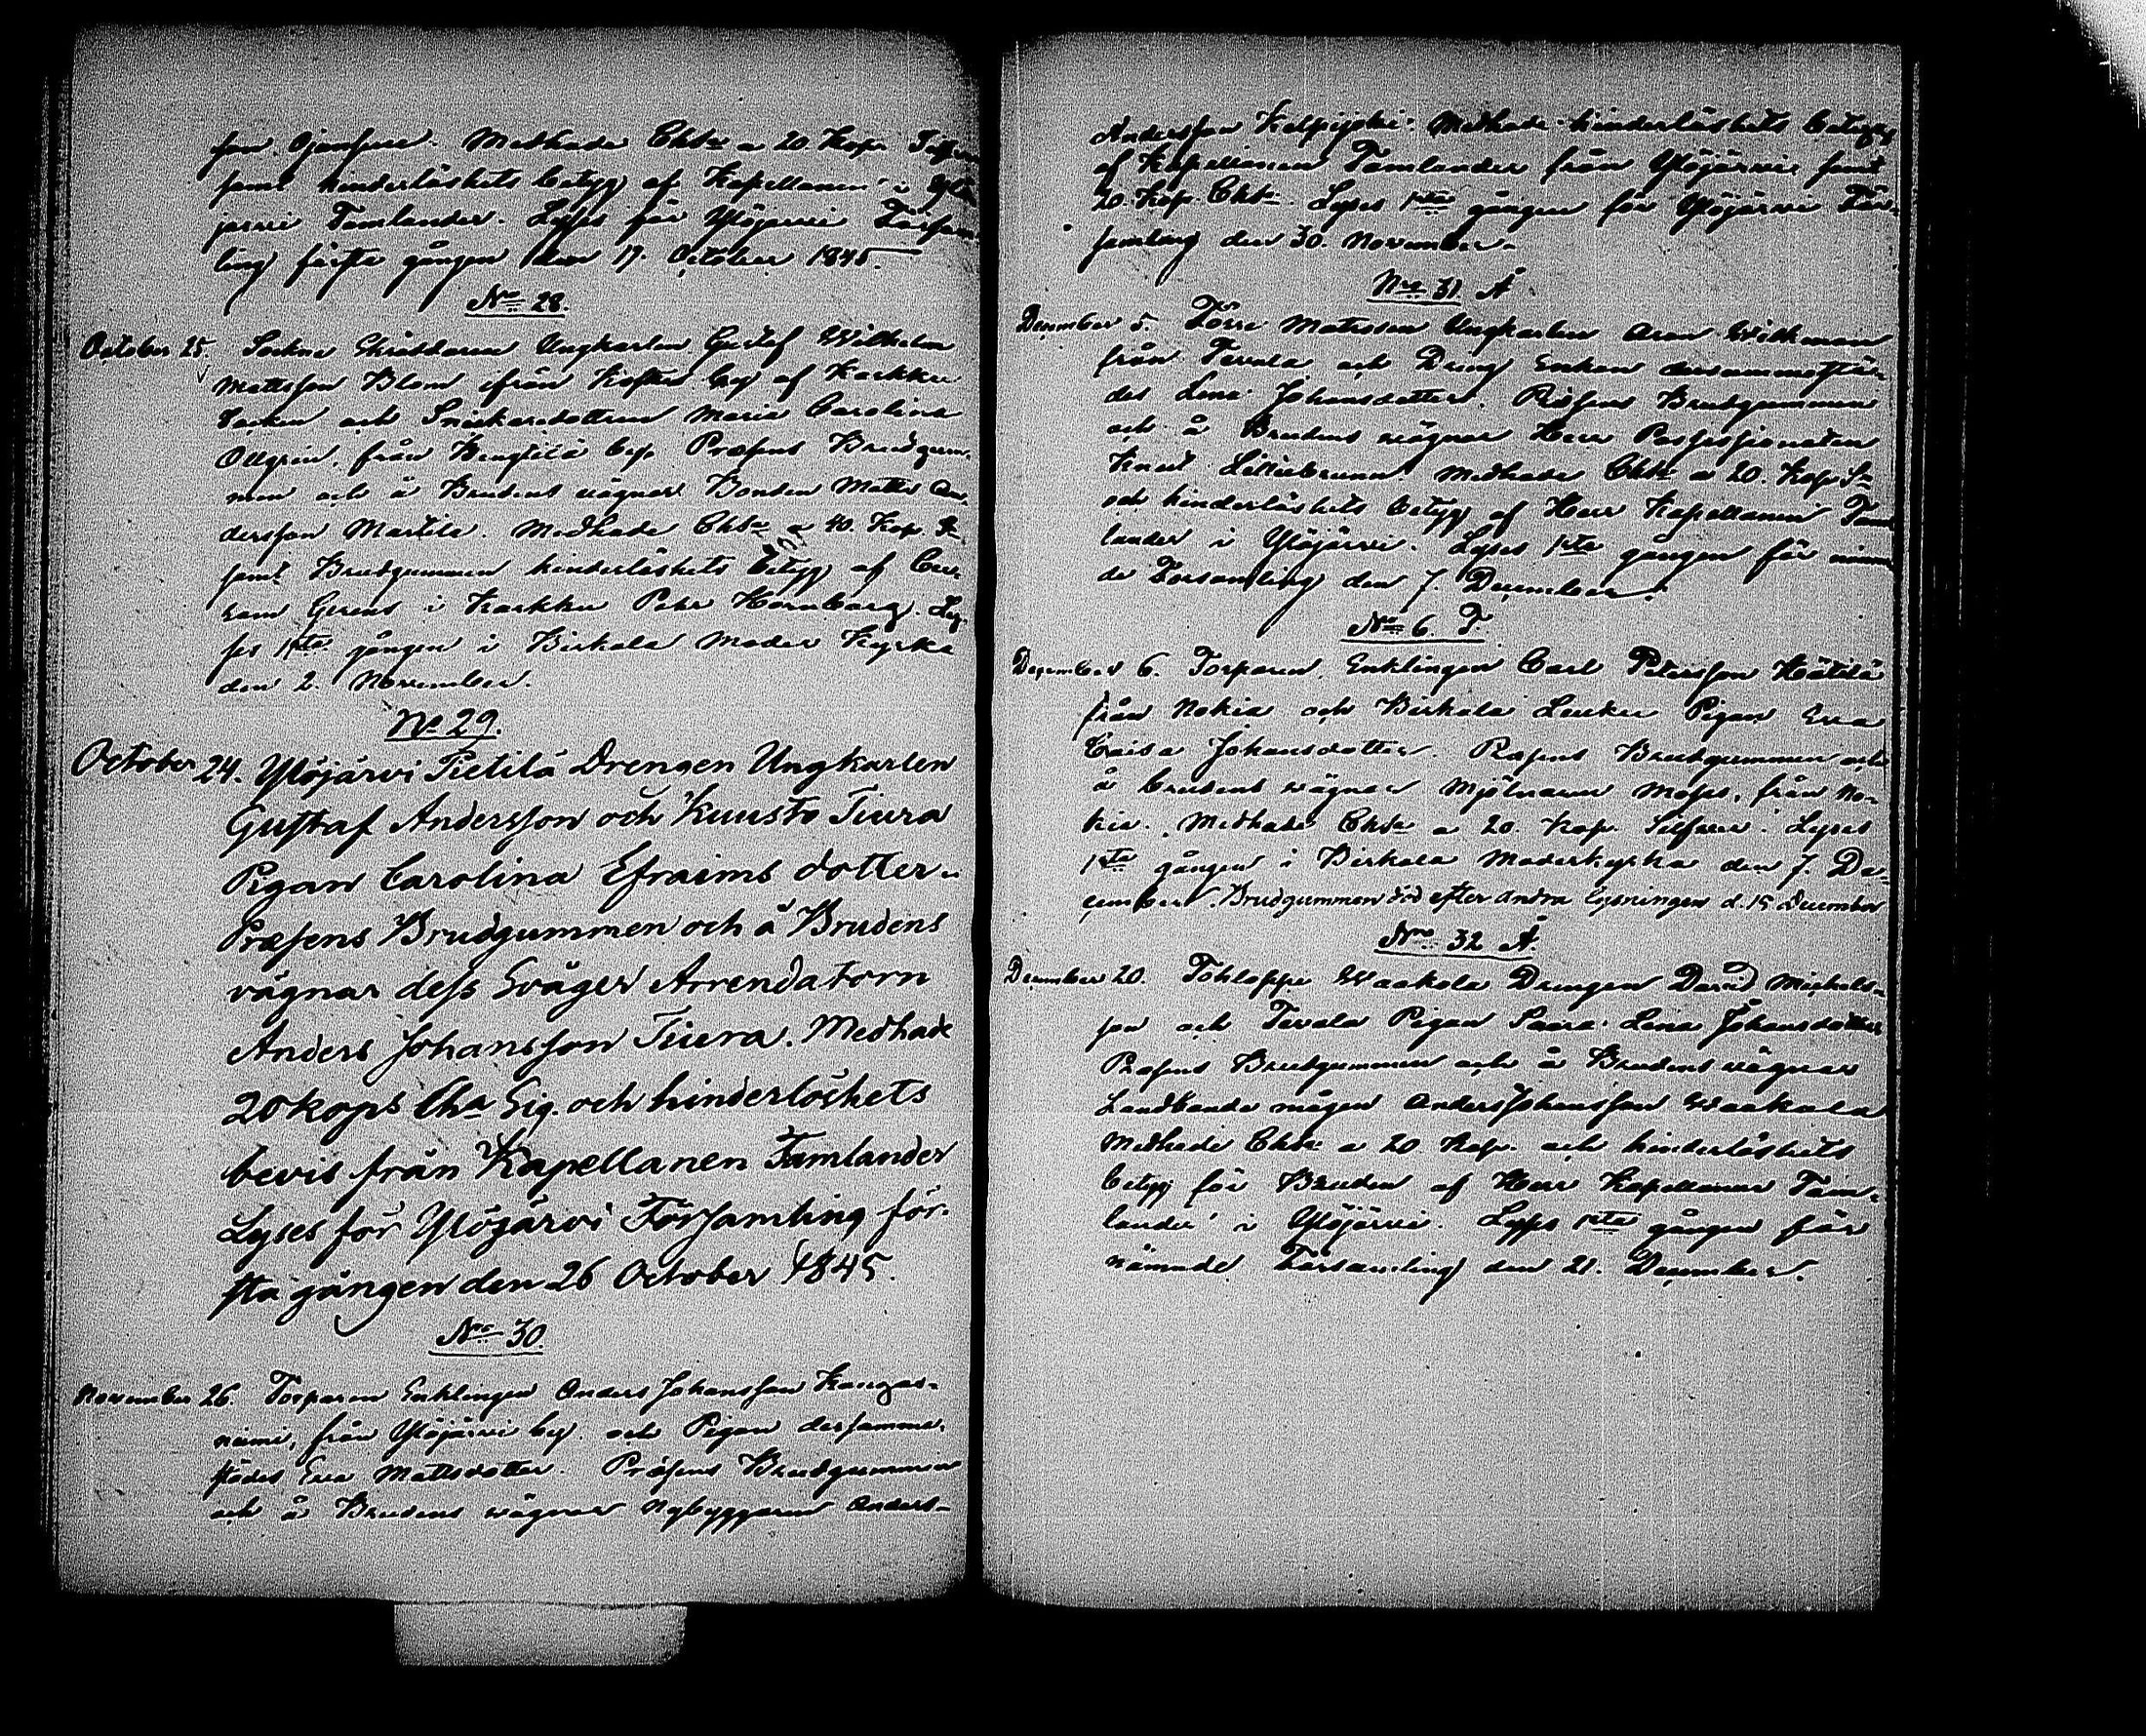 son Ojansuu. Medhade Chta a 20 Kop.
samt hinderlöshets betyg af Kapellanen i Ylö
järvi Tamlander. Lyses för Ylöjärvi Försam⸗
ling första gången den 19. October 1845.
No 28.
October 25. Sockne Skräddaren Ungkarlen Gustaf Wilhelm
Mattsson Blom ifrån by af Karkku
Socken och Snickaredottren Maria Carolina
Ollgren, från by. Præsens Brudgum-
men och å Brudens vägnar Bonden Matts An-
dersson Martila. Medhade Chta a 40. Kop. Sr
samt Brudgummen hinderlöshets betyg af Cu-
ram Gerens i Karkku Petr Hornborg. Ly-
ses 1sta gången i Birkala Moder Kyrka
den 2. November.
No 29.
October 24. Ylöjärvi Pietilä Drengen Ungkarlen
Gustaf Andersson och Kuusto Tiura
Pigan Carolina Efraims dotter.
Præsens Brudgummen och å Brudens
vägnar dess Svåger Arrendatorn
Anders Johansson Tiura. Medhade
20 kops Cha Sig. och hinderlöshets
bevis från Kapellanen Tamlander
Lyses för Ylöjärvi Församling för-
sta gången den 26 October 1845.
Nro 30.
November 26. Torparen Enklingen Anders Johansson Kangas-
niemi, från Ylöjärvi by och Pigan dersamma-
städes Eva Mattsdotter. Præsens Brudgummen
och å Brudens vägnar Nybyggaren Anders-
Andersson Medhade hinderlöshets betyg
af Kapellanen Tamlander från Ylöjärvi samt
20. Kop. Chta. Lyses 1sta gången för Ylöjärvi För-
samling den 30. November.
Nro 31 Å
December 5. Förre Matrosen Ungkarlen Aron Wikman
från Tevala och Dreng Enkan dersammastä-
des Lena Johansdotter. Præsens Brudgummen
och å Brudens vägnar Herr Possessionaten
Knut Liliebrunn. Medhade Chta a 20. Kop. Sr
och hinderlöshets betyg af Herr Kapellanen Tam
lander i Ylöjärvi. Lyses 1sta gången för nämn
de Församling den 7. December.
No 6. F.
December 6. Torparen, Enklingen Carl Petersson Hätilä
från Nokia och Birkala Leuku Pigan Eva
Caisa Johansdotter. Præsens Brudgummen och
å brudens vägnar Mjölnaren från No-
kia. Medhade Chta a 20. Kop. Silfver. Lyses
1sta gången i Birkala Moderkyrka den 7. De-
cember. Brudgummen död efter andra lysningen d. 15 December
Nro 32 Å.
December 20. Tohloppi Waakola Drengen David Michels-
son och Tevala Pigan Lena Johansdotter
Præsens Brudgummen och å Brudens vägnar
Landbonde mågen Anders Johansson Waakola
Medhade Chta a 20. Kop. och hinderlöshets
betyg för Bruden af Herr Kapellanen Tam-
lander i Ylöjärvi. Lyses 1sta gången för
nämnde Församling den 21. December.